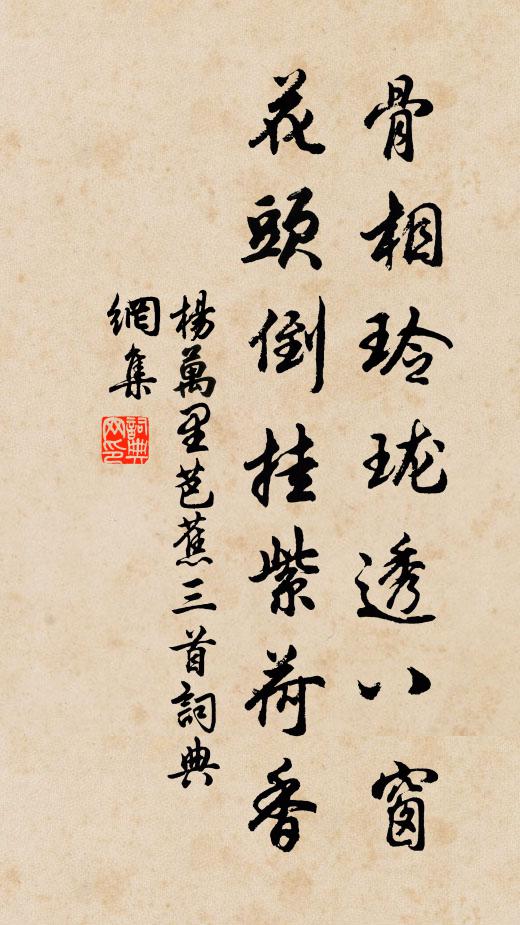 骨相玲瓏透八窗
花頭倒挂紫荷香
楊萬里芭蕉三首詞典
網集
詞典
网印